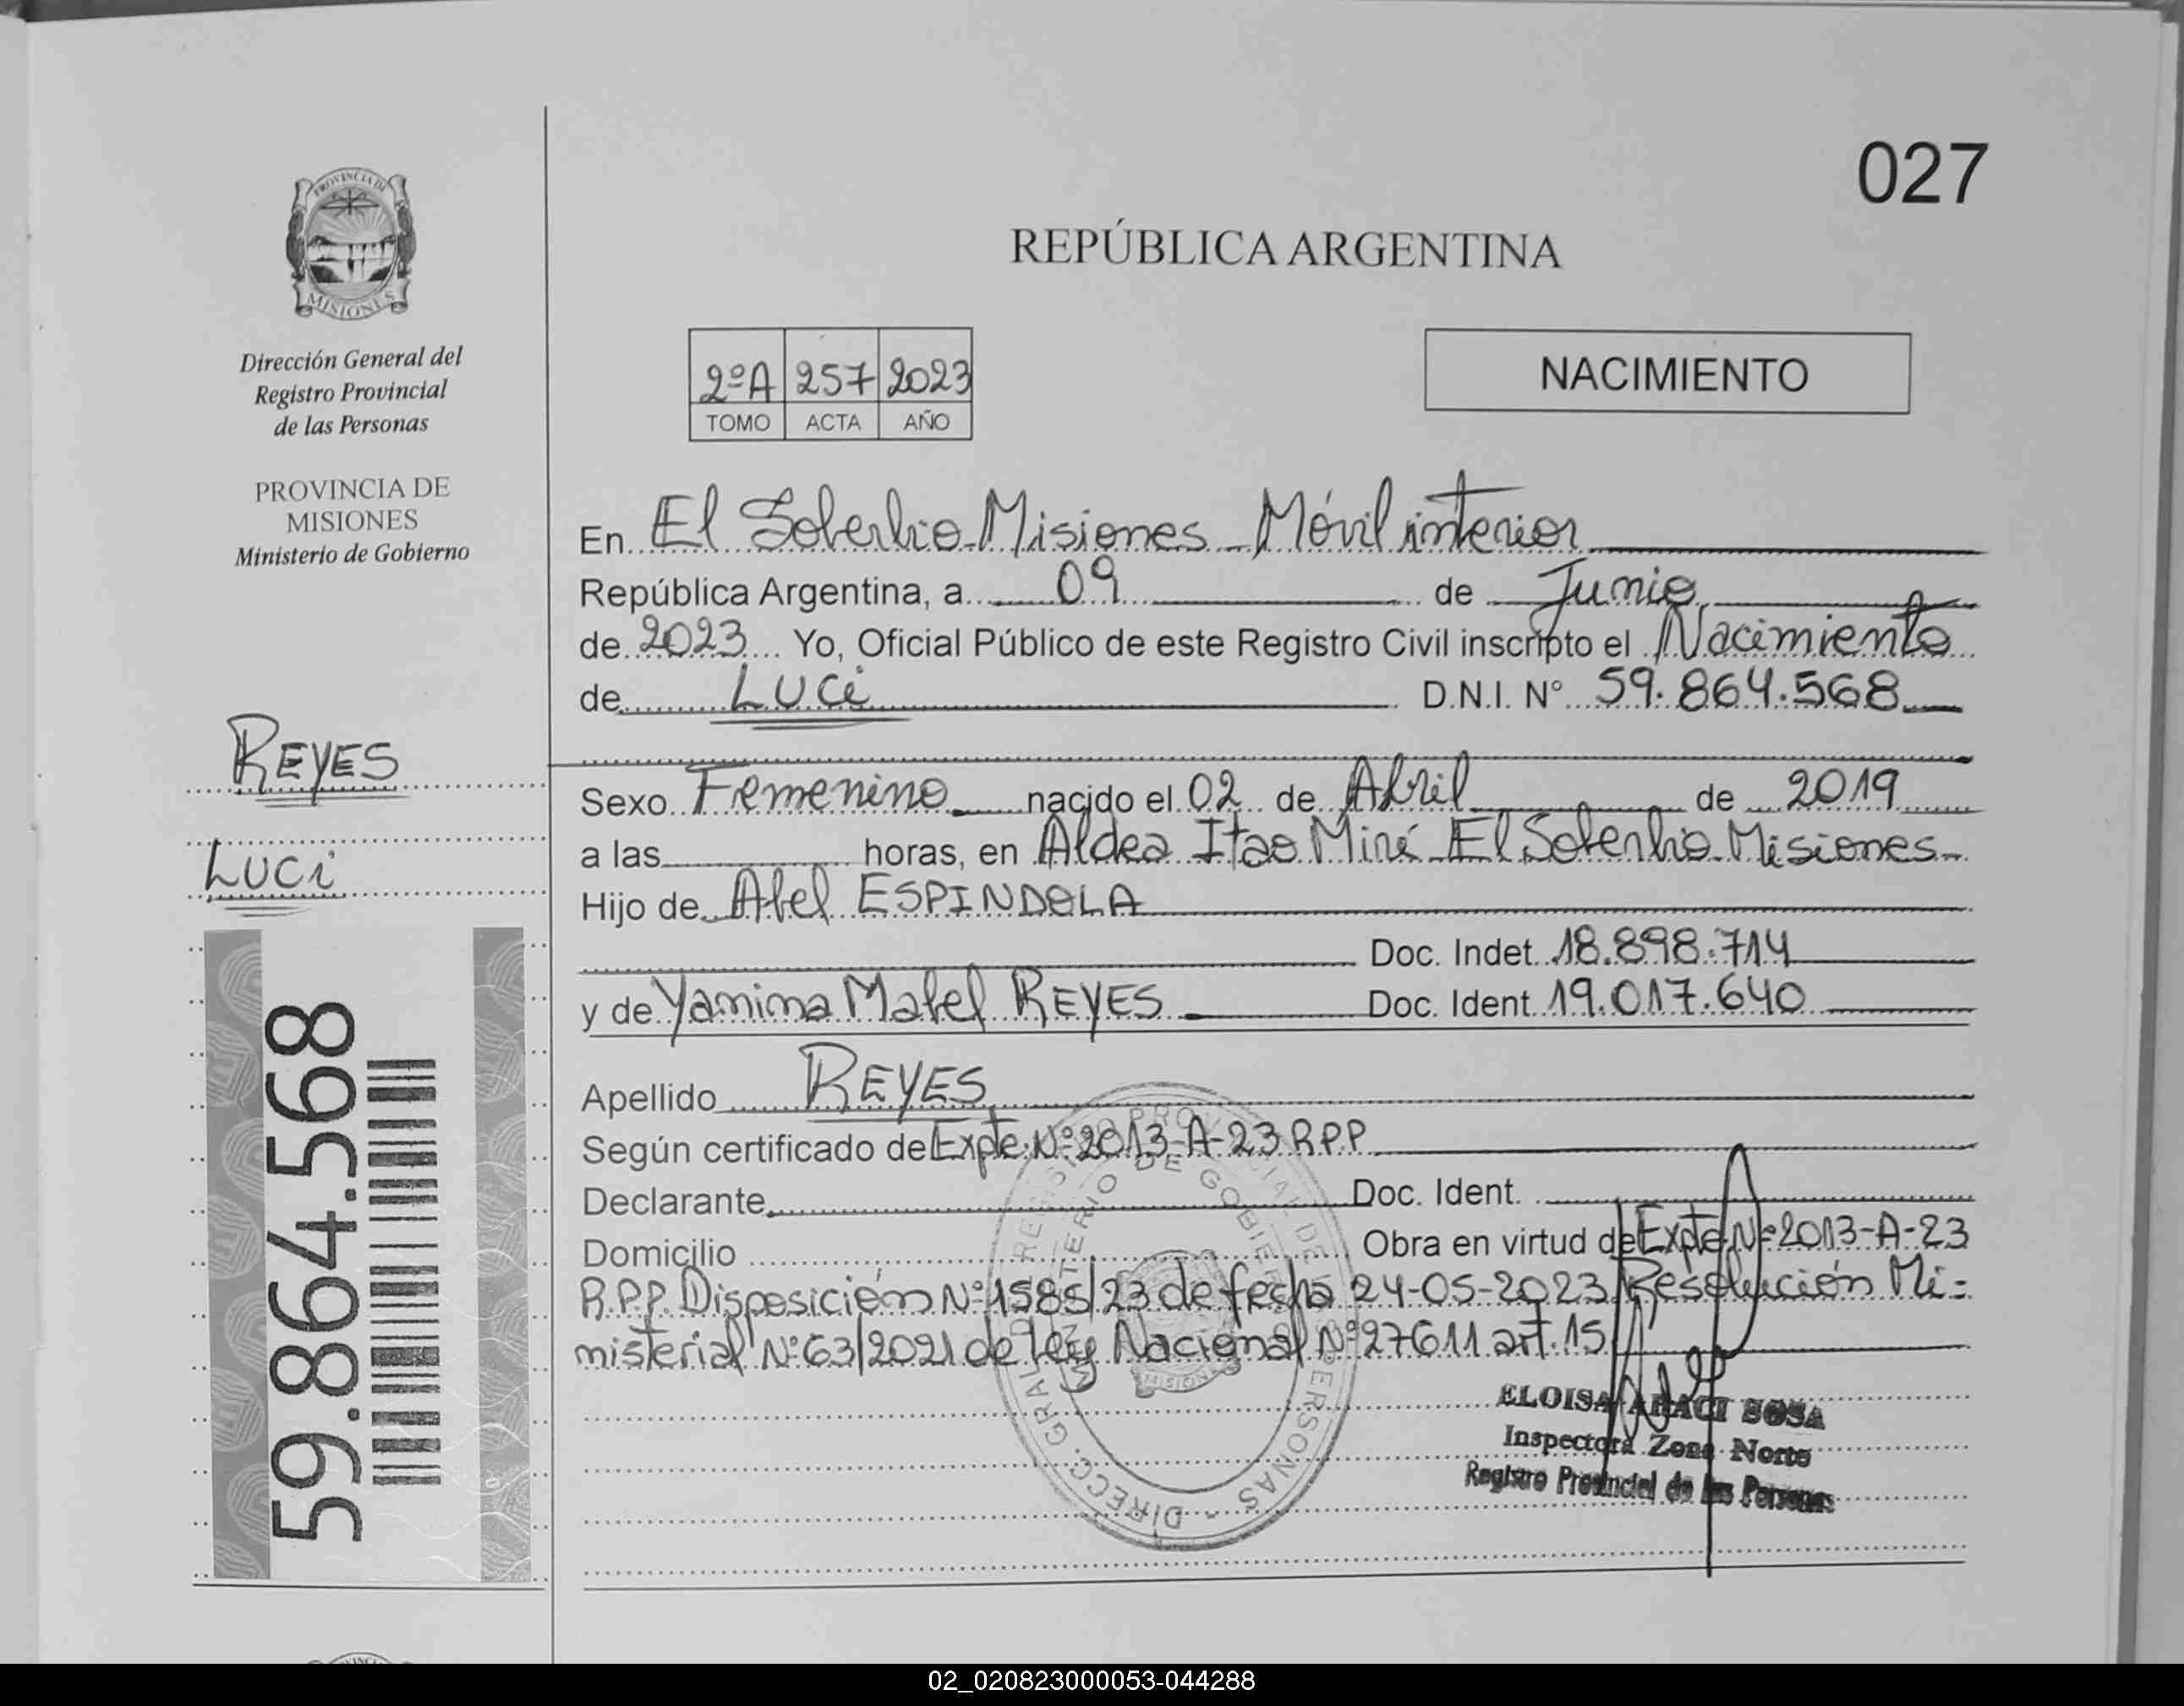 027
PROVINCIA DE
MISIONES
Dirección General del
Registro Provincial
de las Personas
PROVINCIA DE
MISIONES
Ministerio de Gobierno
REYES
LUCi
59.864.568
REPÚBLICA ARGENTINA
2ºA 257 2023
TOMO ACTA AÑO
NACIMIENTO
En El Soberbio-Misiones-Móvil interior
República Argentina, a 09 de Junio
de 2023 Yo, Oficial Público de este Registro Civil inscripto el Nacimiento
de LUCi D.N.I. N° 59.864.568
Sexo Femenino nacido el 02 de Abril de 2019
a las horas, en Aldea Itao Miní-El Soberbio-Misiones-
Hijo de Abel ESPINDOLA
Doc. Indet. 18.898.714
y de Yamina Mabel REYES Doc. Ident. 19.017.640
Apellido REYES
Según certificado de Expte Nº 2013-A-23 R.P.P
Declarante Doc. Ident.
Domicilio Obra en virtud de Expte Nº 2013-A-23
R.P.P. Disposición Nº 1585/23 de fecha 24-05-2023 Resolución Mi=
nisterial Nº 63/2021 de ley Nacional Nº 27611 art. 15
DIRECC. GRAL. DE REGISTRO PROVINCIAL DE PERSONAS -
MINISTERIO DE GOBIERNO
MISIONES
ELOISA ARACI SOSA
Inspectora Zona Norte
Registro Provincial de las Personas
02_020823000053-044288